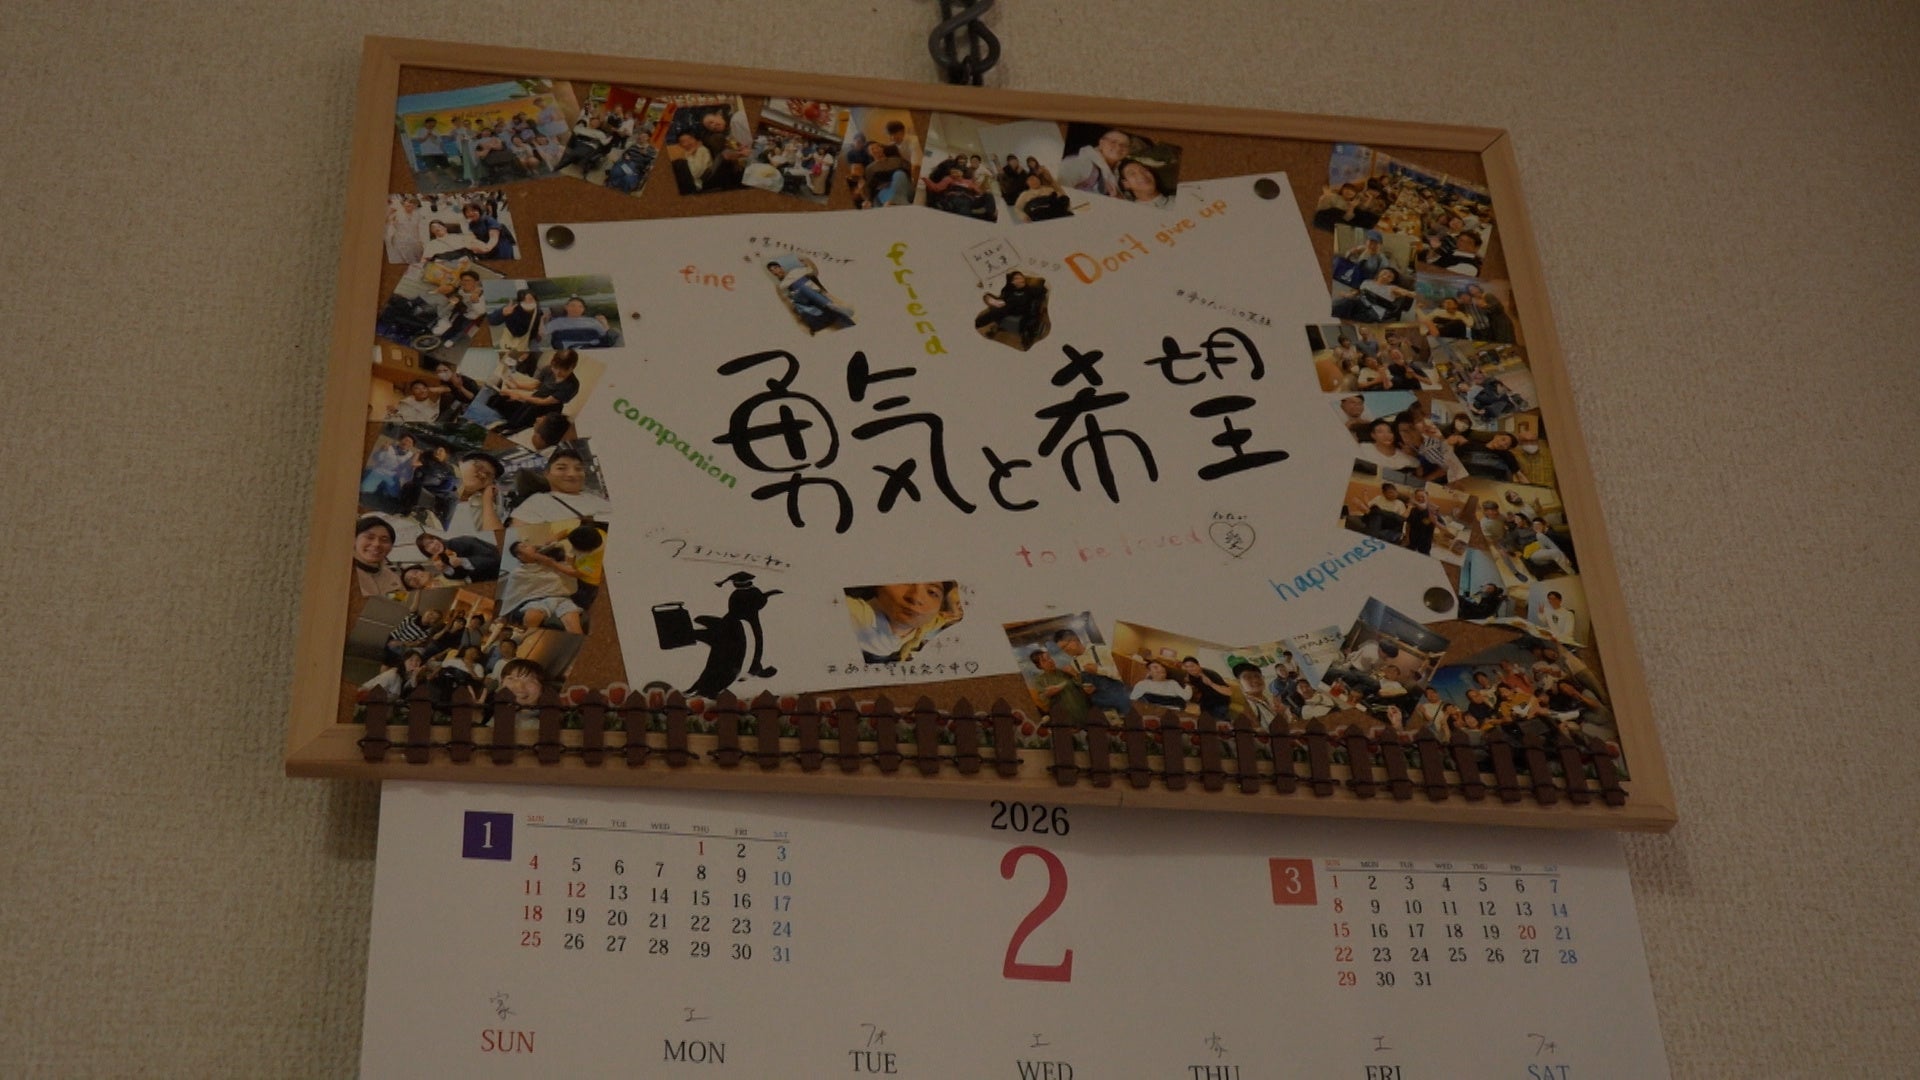 fine
friend
Don't give up
勇気と希望
companion
アオハルだね。
to be loved
愛
happiness
2026
1
SUN MON TUE WED THU FRI SAT
1 2 3
4 5 6 7 8 9 10
11 12 13 14 15 16 17
18 19 20 21 22 23 24
25 26 27 28 29 30 31
2
3
SUN MON TUE WED THU FRI SAT
1 2 3 4 5 6 7
8 9 10 11 12 13 14
15 16 17 18 19 20 21
22 23 24 25 26 27 28
29 30 31
家 エ フォ エ 家 エ フォ
SUN MON TUE WED THU FRI SAT